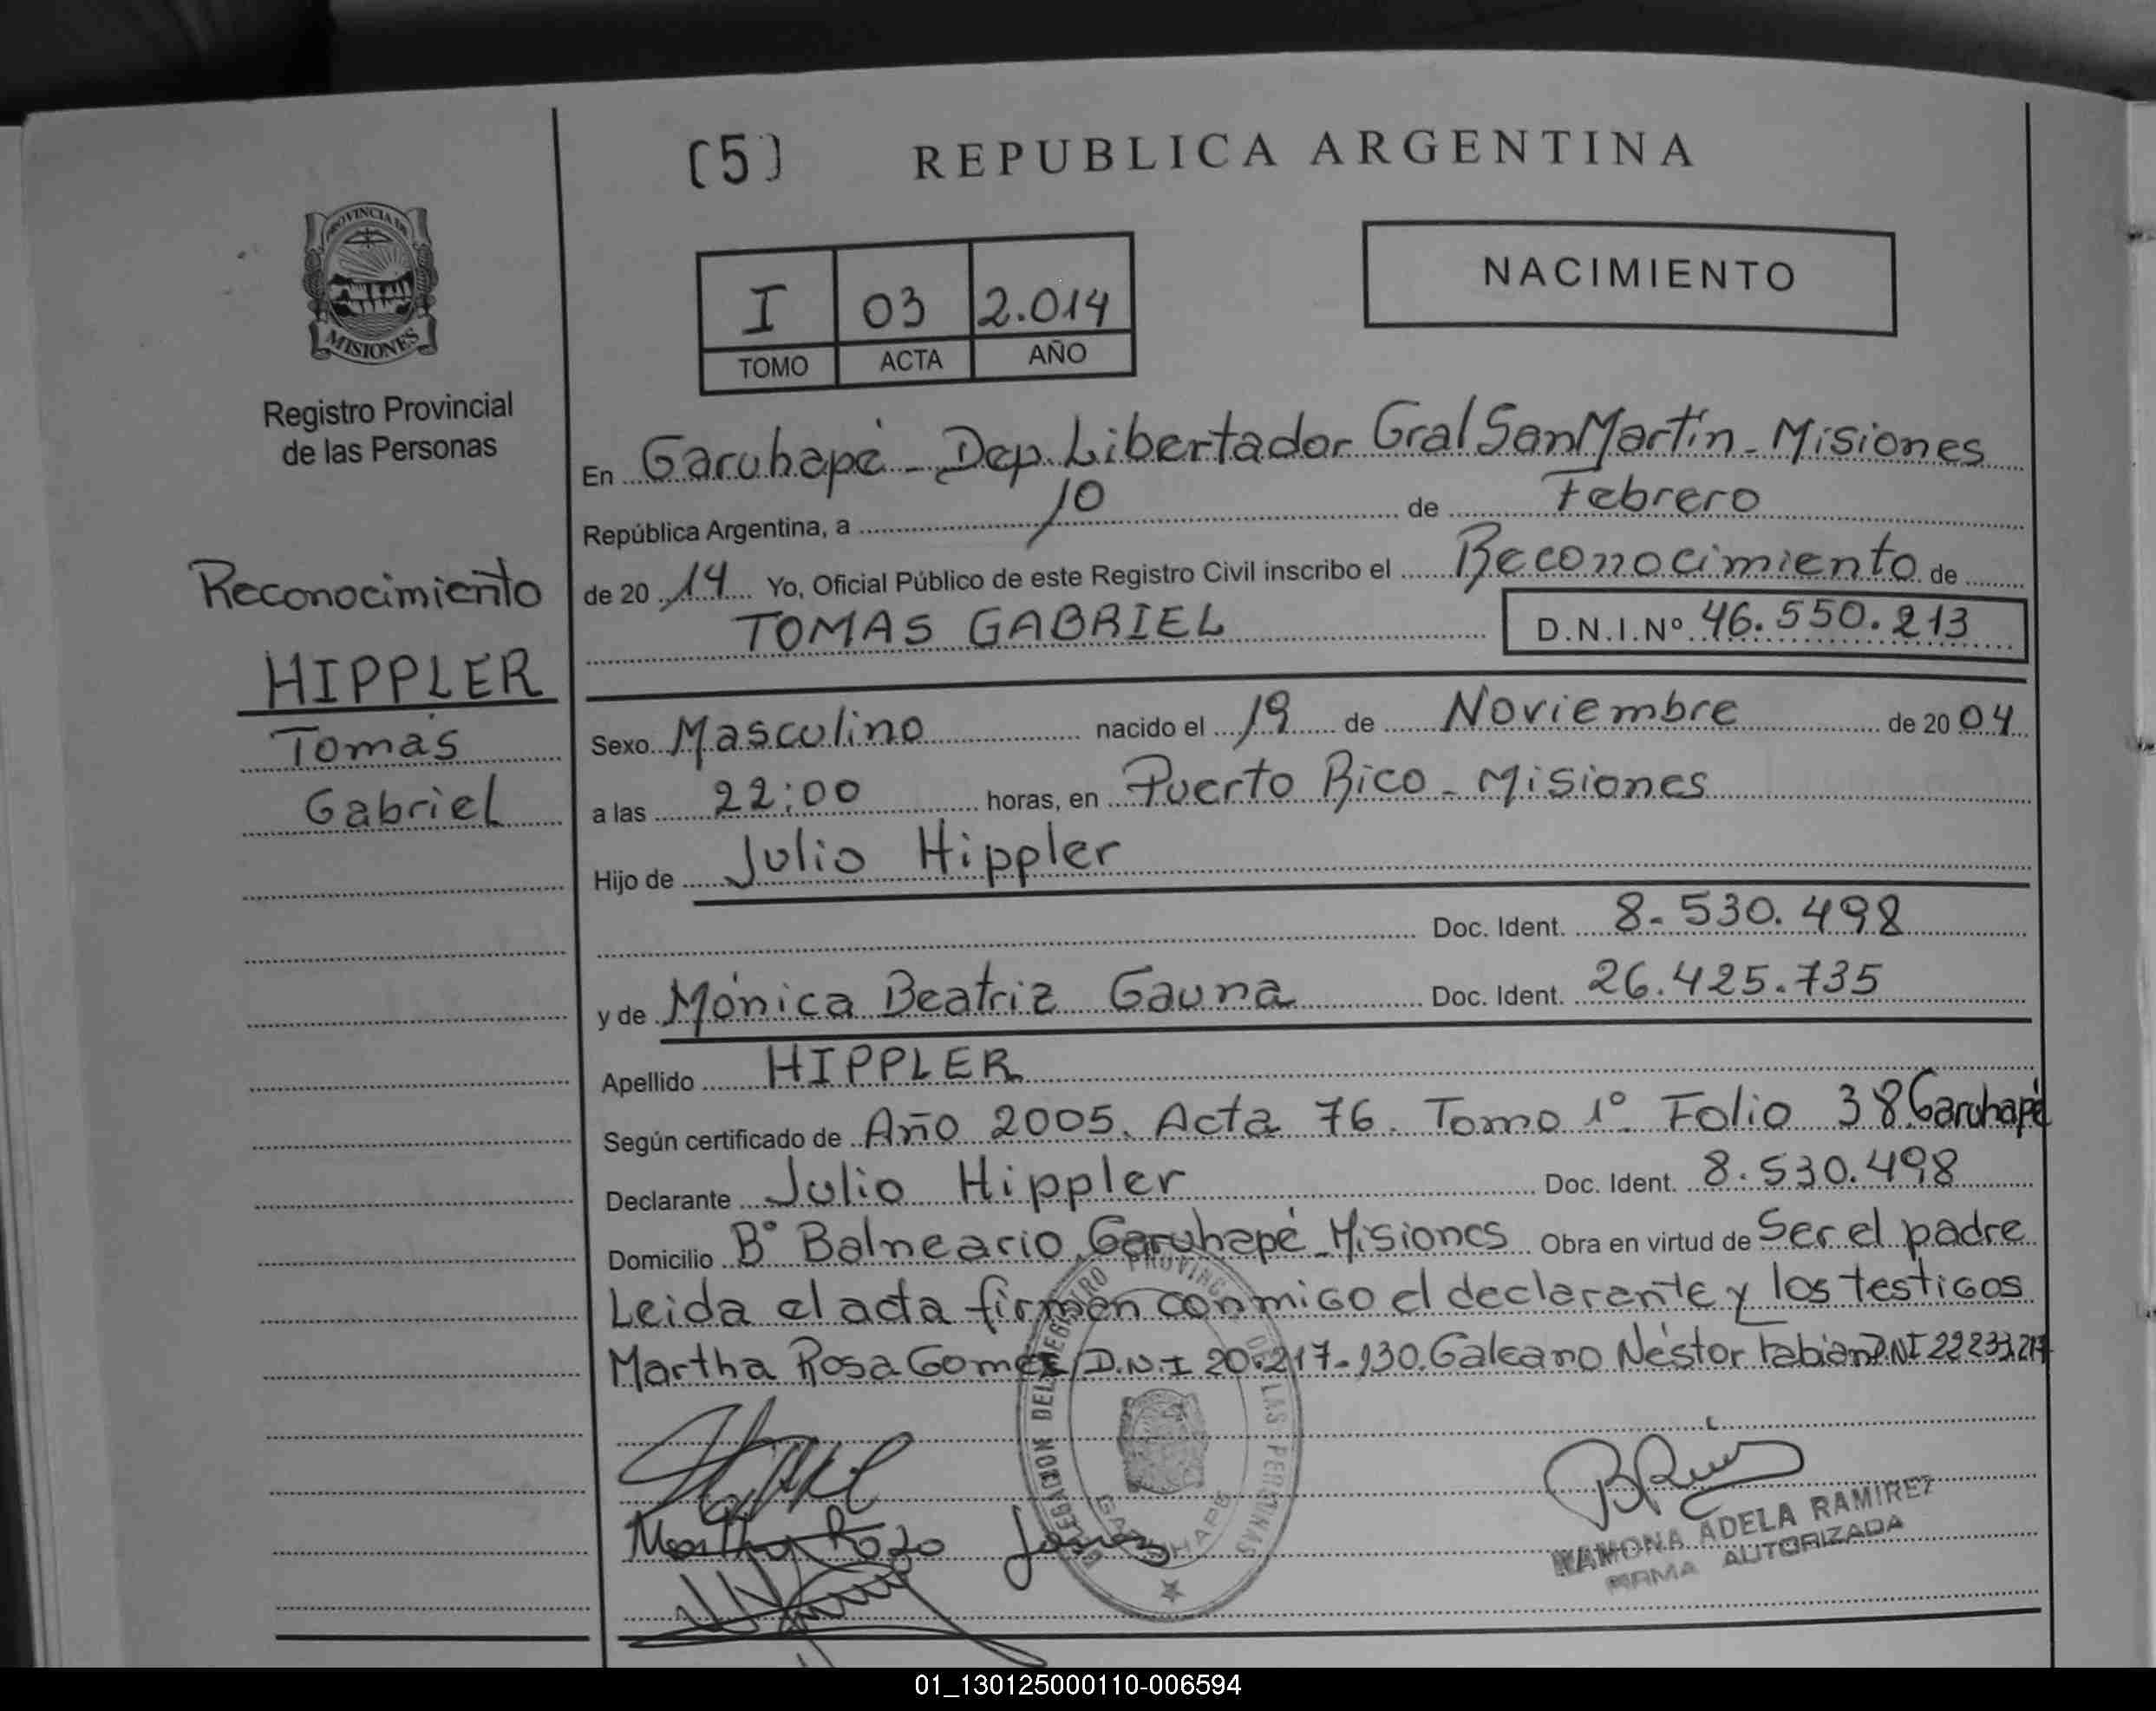 (5) REPUBLICA ARGENTINA
PROVINCIA DE
MISIONES
Registro Provincial
de las Personas
I 03 2.014
TOMO ACTA AÑO
NACIMIENTO
Reconocimiento
HIPPLER
Tomás
Gabriel
En Garuhapé - Dep. Libertador Gral San Martín - Misiones
República Argentina, a 10 de Febrero
de 20 14 Yo, Oficial Público de este Registro Civil inscribo el Reconocimiento de
TOMAS GABRIEL D.N.I.Nº 46.550.213
Sexo Masculino nacido el 19 de Noviembre de 20 04
a las 22:00 horas, en Puerto Rico - Misiones
Hijo de Julio Hippler
Doc. Ident. 8.530.498
y de Mónica Beatriz Gauna Doc. Ident. 26.425.735
Apellido HIPPLER
Según certificado de Año 2005. Acta 76. Tomo 1º. Folio 38 Garuhapé
Declarante Julio Hippler Doc. Ident. 8.530.498
Domicilio Bº Balneario Garuhapé - Misiones Obra en virtud de Ser el padre
Leida el acta firman conmigo el declarante y los testigos
Martha Rosa Gomez D.N.I 20.217.130. Galeano Néstor Fabian D.NI
DELEGACION DEL REGISTRO PROVINCIAL DE LAS PERSONAS
GARUHAPE
Martha Rosa Gomez
RAMONA ADELA RAMIREZ
FIRMA AUTORIZADA
01_130125000110-006594